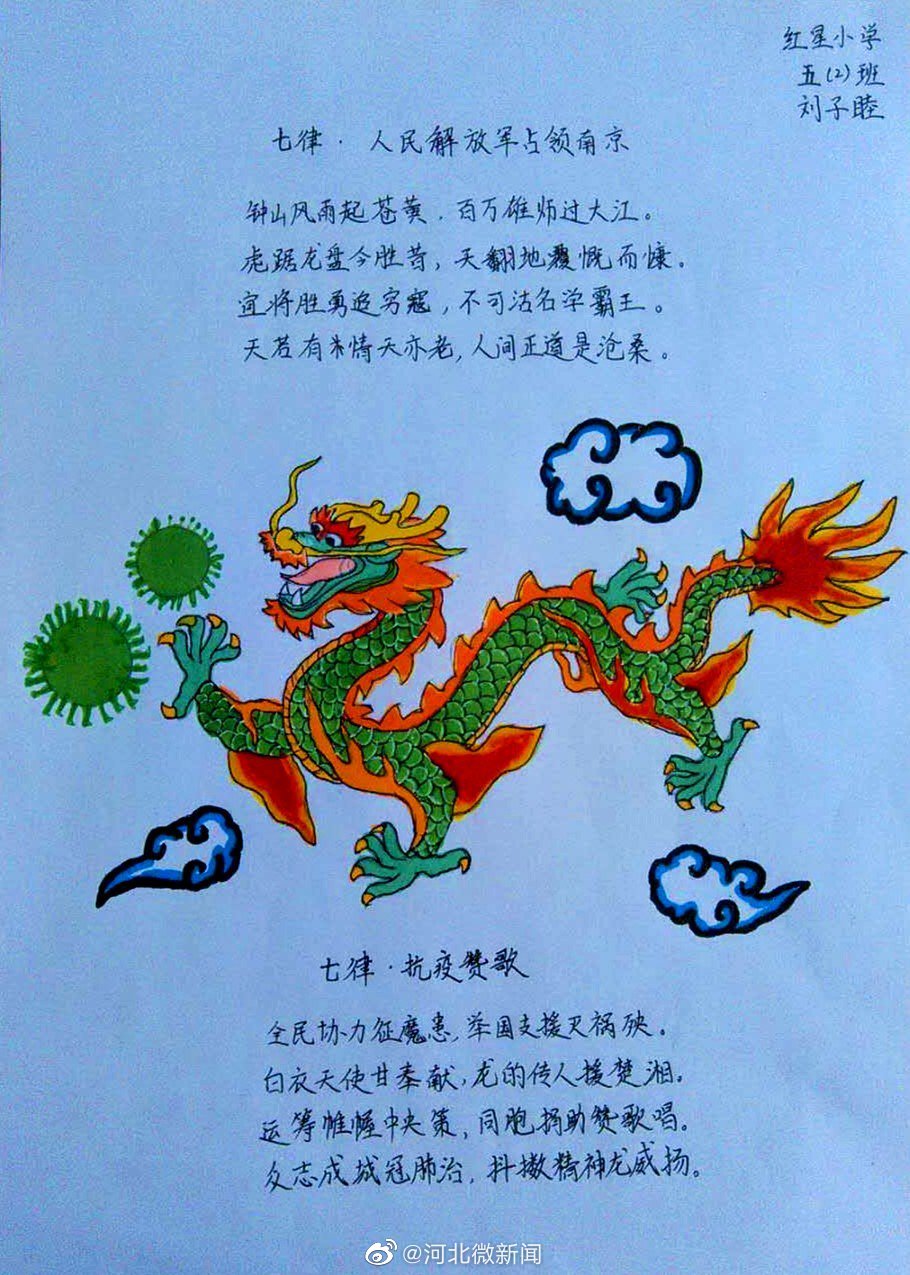 红星小学
五(2)班
刘子睦
七律·人民解放军占领南京
钟山风雨起苍黄，百万雄师过大江。
虎踞龙盘今胜昔，天翻地覆慨而慷。
宜将胜勇追穷寇，不可沽名学霸王。
天若有情天亦老，人间正道是沧桑。
七律·抗疫赞歌
全民协力征魔患，举国支援灭祸殃。
白衣天使甘奉献，龙的传人援楚湘。
运筹帷幄中央策，同胞捐助赞歌唱。
众志成城冠肺治，抖擞精神龙威扬。
@河北微新闻